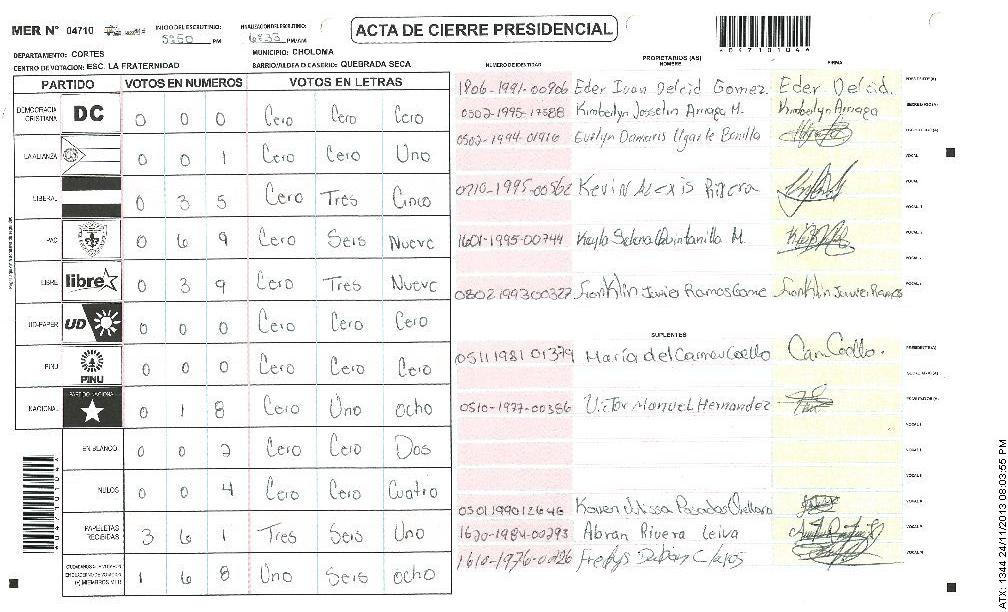 MER N° 04710
INICIO DEL ESCRUTINIO: PM
FINALIZACION DEL ESCRUTINIO: PM/AM
ACTA DE CIERRE PRESIDENCIAL
DEPARTAMENTO: CORTES
MUNICIPIO: CHOLOMA
CENTRO DE VOTACION: ESC. LA FRATERNIDAD
BARRIO/ALDEA O CASERIO: QUEBRADA SECA
PARTIDO VOTOS EN NUMEROS VOTOS EN LETRAS
DEMOCRACIA CRISTIANA DC 0 0 0 Cero Cero Cero
LA ALIANZA 0 0 1 Cero Cero Uno
LIBERAL 0 3 5 Cero Tres Cinco
PAC 0 6 9 Cero Seis Nueve
LIBRE libre 0 3 9 Cero Tres Nueve
UD-FAPER UD 0 0 0 Cero Cero Cero
PINU PINU 0 0 0 Cero Cero Cero
NACIONAL PARTIDO NACIONAL 0 1 8 Cero Uno ocho
EN BLANCO 0 0 2 Cero Cero Dos
NULOS 0 0 4 Cero Cero Cuatro
PAPELETAS RECIBIDAS 3 6 1 Tres Seis Uno
1 6 8 Uno Seis ocho
PROPIETARIOS (AS)
NUMERO DE IDENTIDAD NOMBRE FIRMA
1806-1991-00906 Eder Ivan Delcid Gomez. Eder Delcid.
0502-1995-17588 Kimberlyn Josselin Arriaga M. Kimberlyn Arriaga
0502-1994-01916 Evelyn Damaris Ugarte Bonilla
VOCAL
0710-1995-00562 Kevin Alexis Rivera
VOCAL
1601-1995-00744 Keyla Selena Quintanilla M.
VOCAL
0802 199300327 Franklin Javier Ramos Gome Franklin Javier Ramos
SUPLENTES
0511 1981 01379 Maria del Carmen Coello Car Coello.
0510-1977-00386 Victor Manuel Hernandez
VOCAL
0501199012646 Karen Ulissa Posadas Orellana
1620-1984-00293 Abran Rivera Leiva
1610-1976-00226
ATX: 1344 24/11/2013 08:03:55 PM